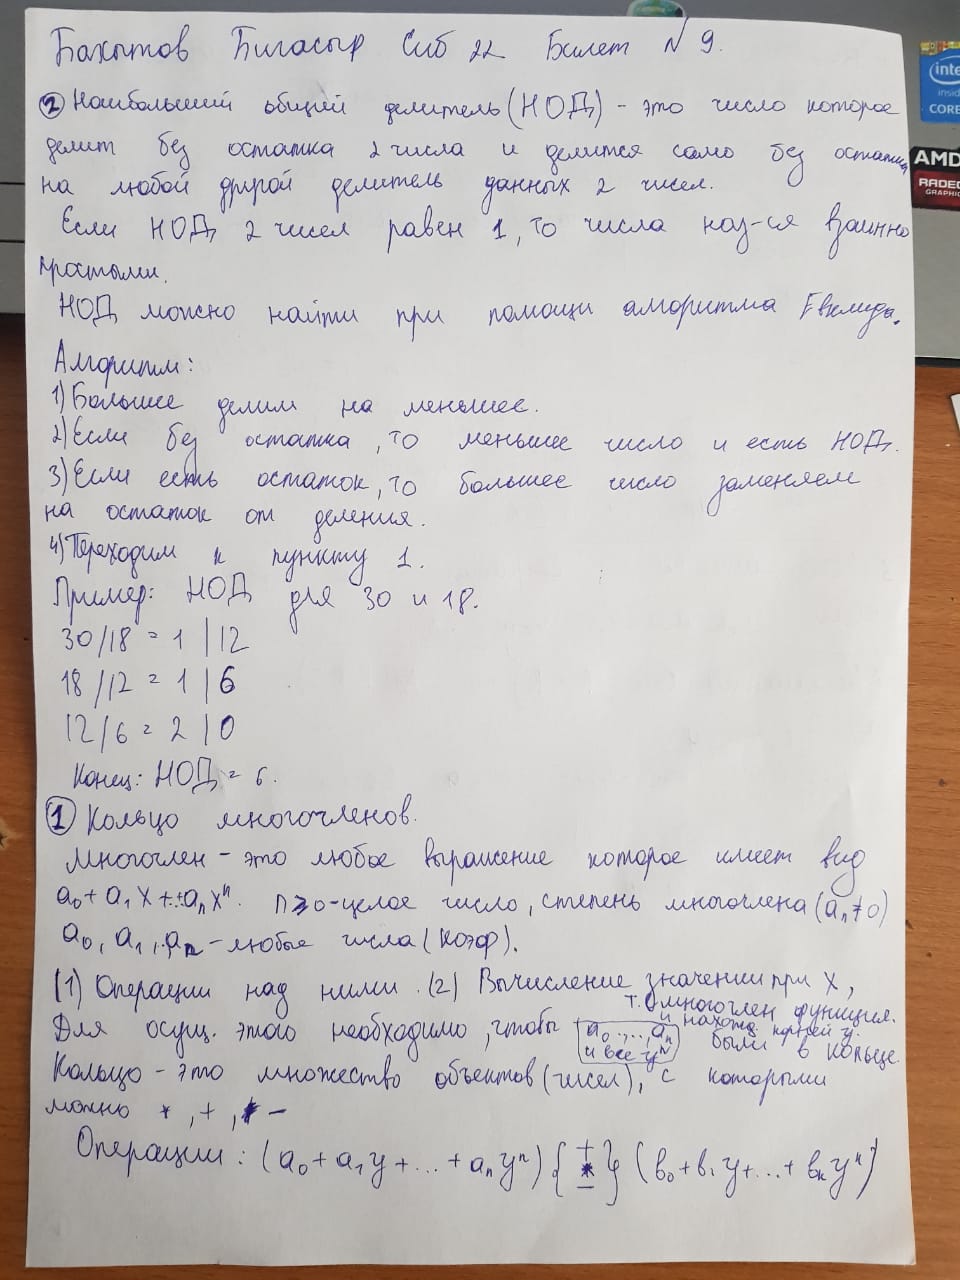 Бакытов Бигасыр Сиб 22 Билет №9.
② Наибольший общий делитель (НОД) - это число которое
делит без остатка 2 числа и делится само без остатка
на любой другой делитель данных 2 чисел.
Если НОД 2 чисел равен 1, то числа наз-ся взаимно
простыми.
НОД можно найти при помощи алгоритма Евклида.
Алгоритм:
1) Большее делим на меньшее.
2) Если без остатка, то меньшее число и есть НОД.
3) Если есть остаток, то большее число заменяем
на остаток от деления.
4) Переходим к пункту 1.
Пример: НОД для 30 и 18.
30/18 = 1 | 12
18/12 = 1 | 6
12/6 = 2 | 0
Конец: НОД = 6.
① Кольцо многочленов.
Многочлен - это любое выражение которое имеет вид
a₀ + a₁x + ... aₙxⁿ. n≥0 - целое число, степень многочлена (aₙ≠0)
a₀, a₁, .. aₙ - любые числа (коэф).
(1) Операции над ними. (2) Вычисление значений при x,
т.е. многочлен функция.
и наход. корней y.
Для осущ. этого необходимо, чтобы a₀, ..., aₙ были в кольце.
и все yᴺ
Кольцо - это множество объектов (чисел), с которыми
можно *, +, -
Операции: (a₀ + a₁y + ... + aₙyⁿ) { + * - } (b₀ + b₁y + ... + bₖyᵏ)
intel
inside
CORE
AMD
RADEON
GRAPHICS